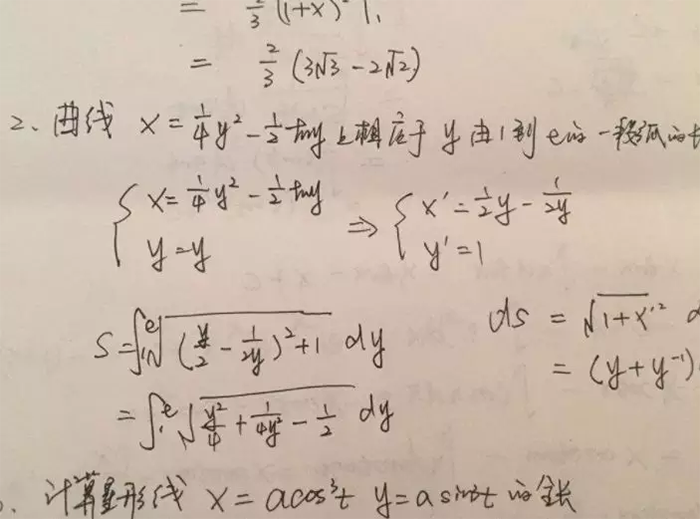 = 2/3 (1+x) |₁
= 2/3 (3√3 − 2√2)
2、曲线 x = 1/4 y² − 1/2 lny 上相应于 y 由1到e的一段弧的长
{ x = 1/4 y² − 1/2 lny ⇒ { x' = 1/2 y − 1/2y
y = y y' = 1
S = ∫₁ᵉ √((y/2 − 1/2y)² + 1) dy ds = √(1+x'²) d
= ∫₁ᵉ √(y²/4 + 1/4y² − 1/2) dy = (y + y⁻¹)
计算星形线 x = acos³t y = a sin³t 的全长